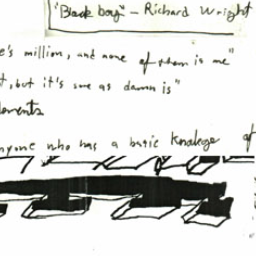 "Black boy" - Richard Wright
e's million, and none of them is me"
t, but it's sure as damn is"
nyone who has a basic Knowlege of